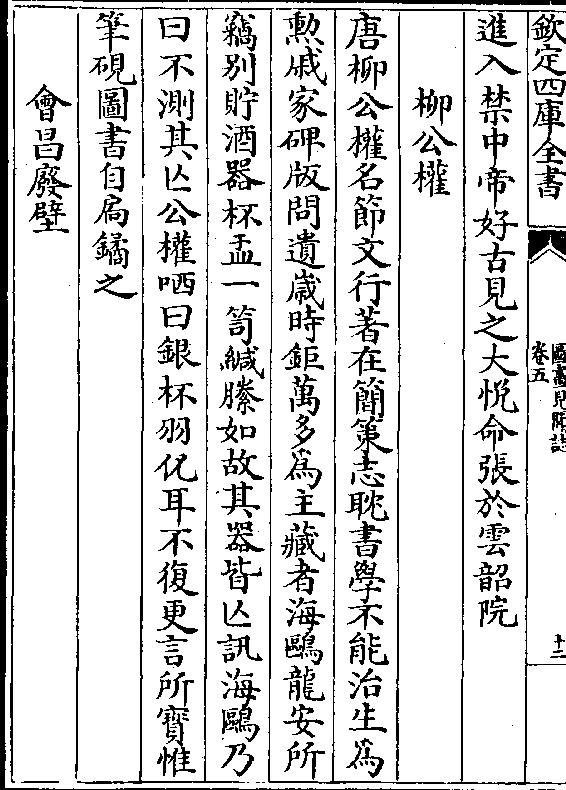 欽定四庫全書
圖畫見聞誌
卷五
十二
進入禁中帝好古見之大悅命張於雲韶院
柳公權
唐柳公權名節文行著在簡策志耽書學不能治生為
勲戚家碑版問遺嵗時鉅萬多為主藏者海鷗龍安所
竊别貯酒器杯盂一笥緘縢如故其器皆亾訊海鷗乃
曰不測其亾公權哂曰銀杯羽化耳不復更言所寳惟
筆硯圖書自扄鐍之
㑹昌廢壁